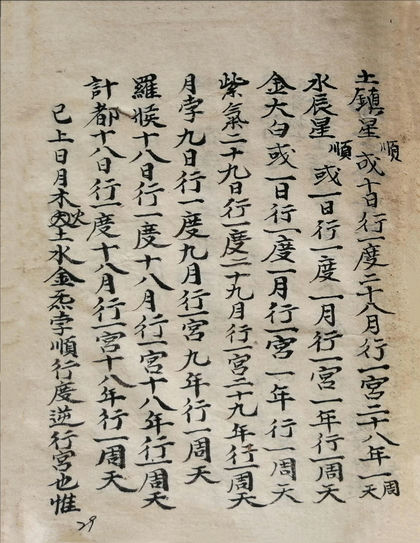 土鎮星順或十日行一度二十八月行一宮二十八年一周天
水辰星順或一日行一度一月行一宮一年行一周天
金太白或一日行一度一月行一宮一年行一周天
紫氣二十九日行一度二十九月行一宮二十九年行一周天
月孛九日行一度九月行一宮九年行一周天
羅㬋十八日行一度十八月行一宮十八年行一周天
計都十八日行一度十八月行一宮十八年行一周天
已上日月木火土水金炁孛順行度逆行宮也惟
29